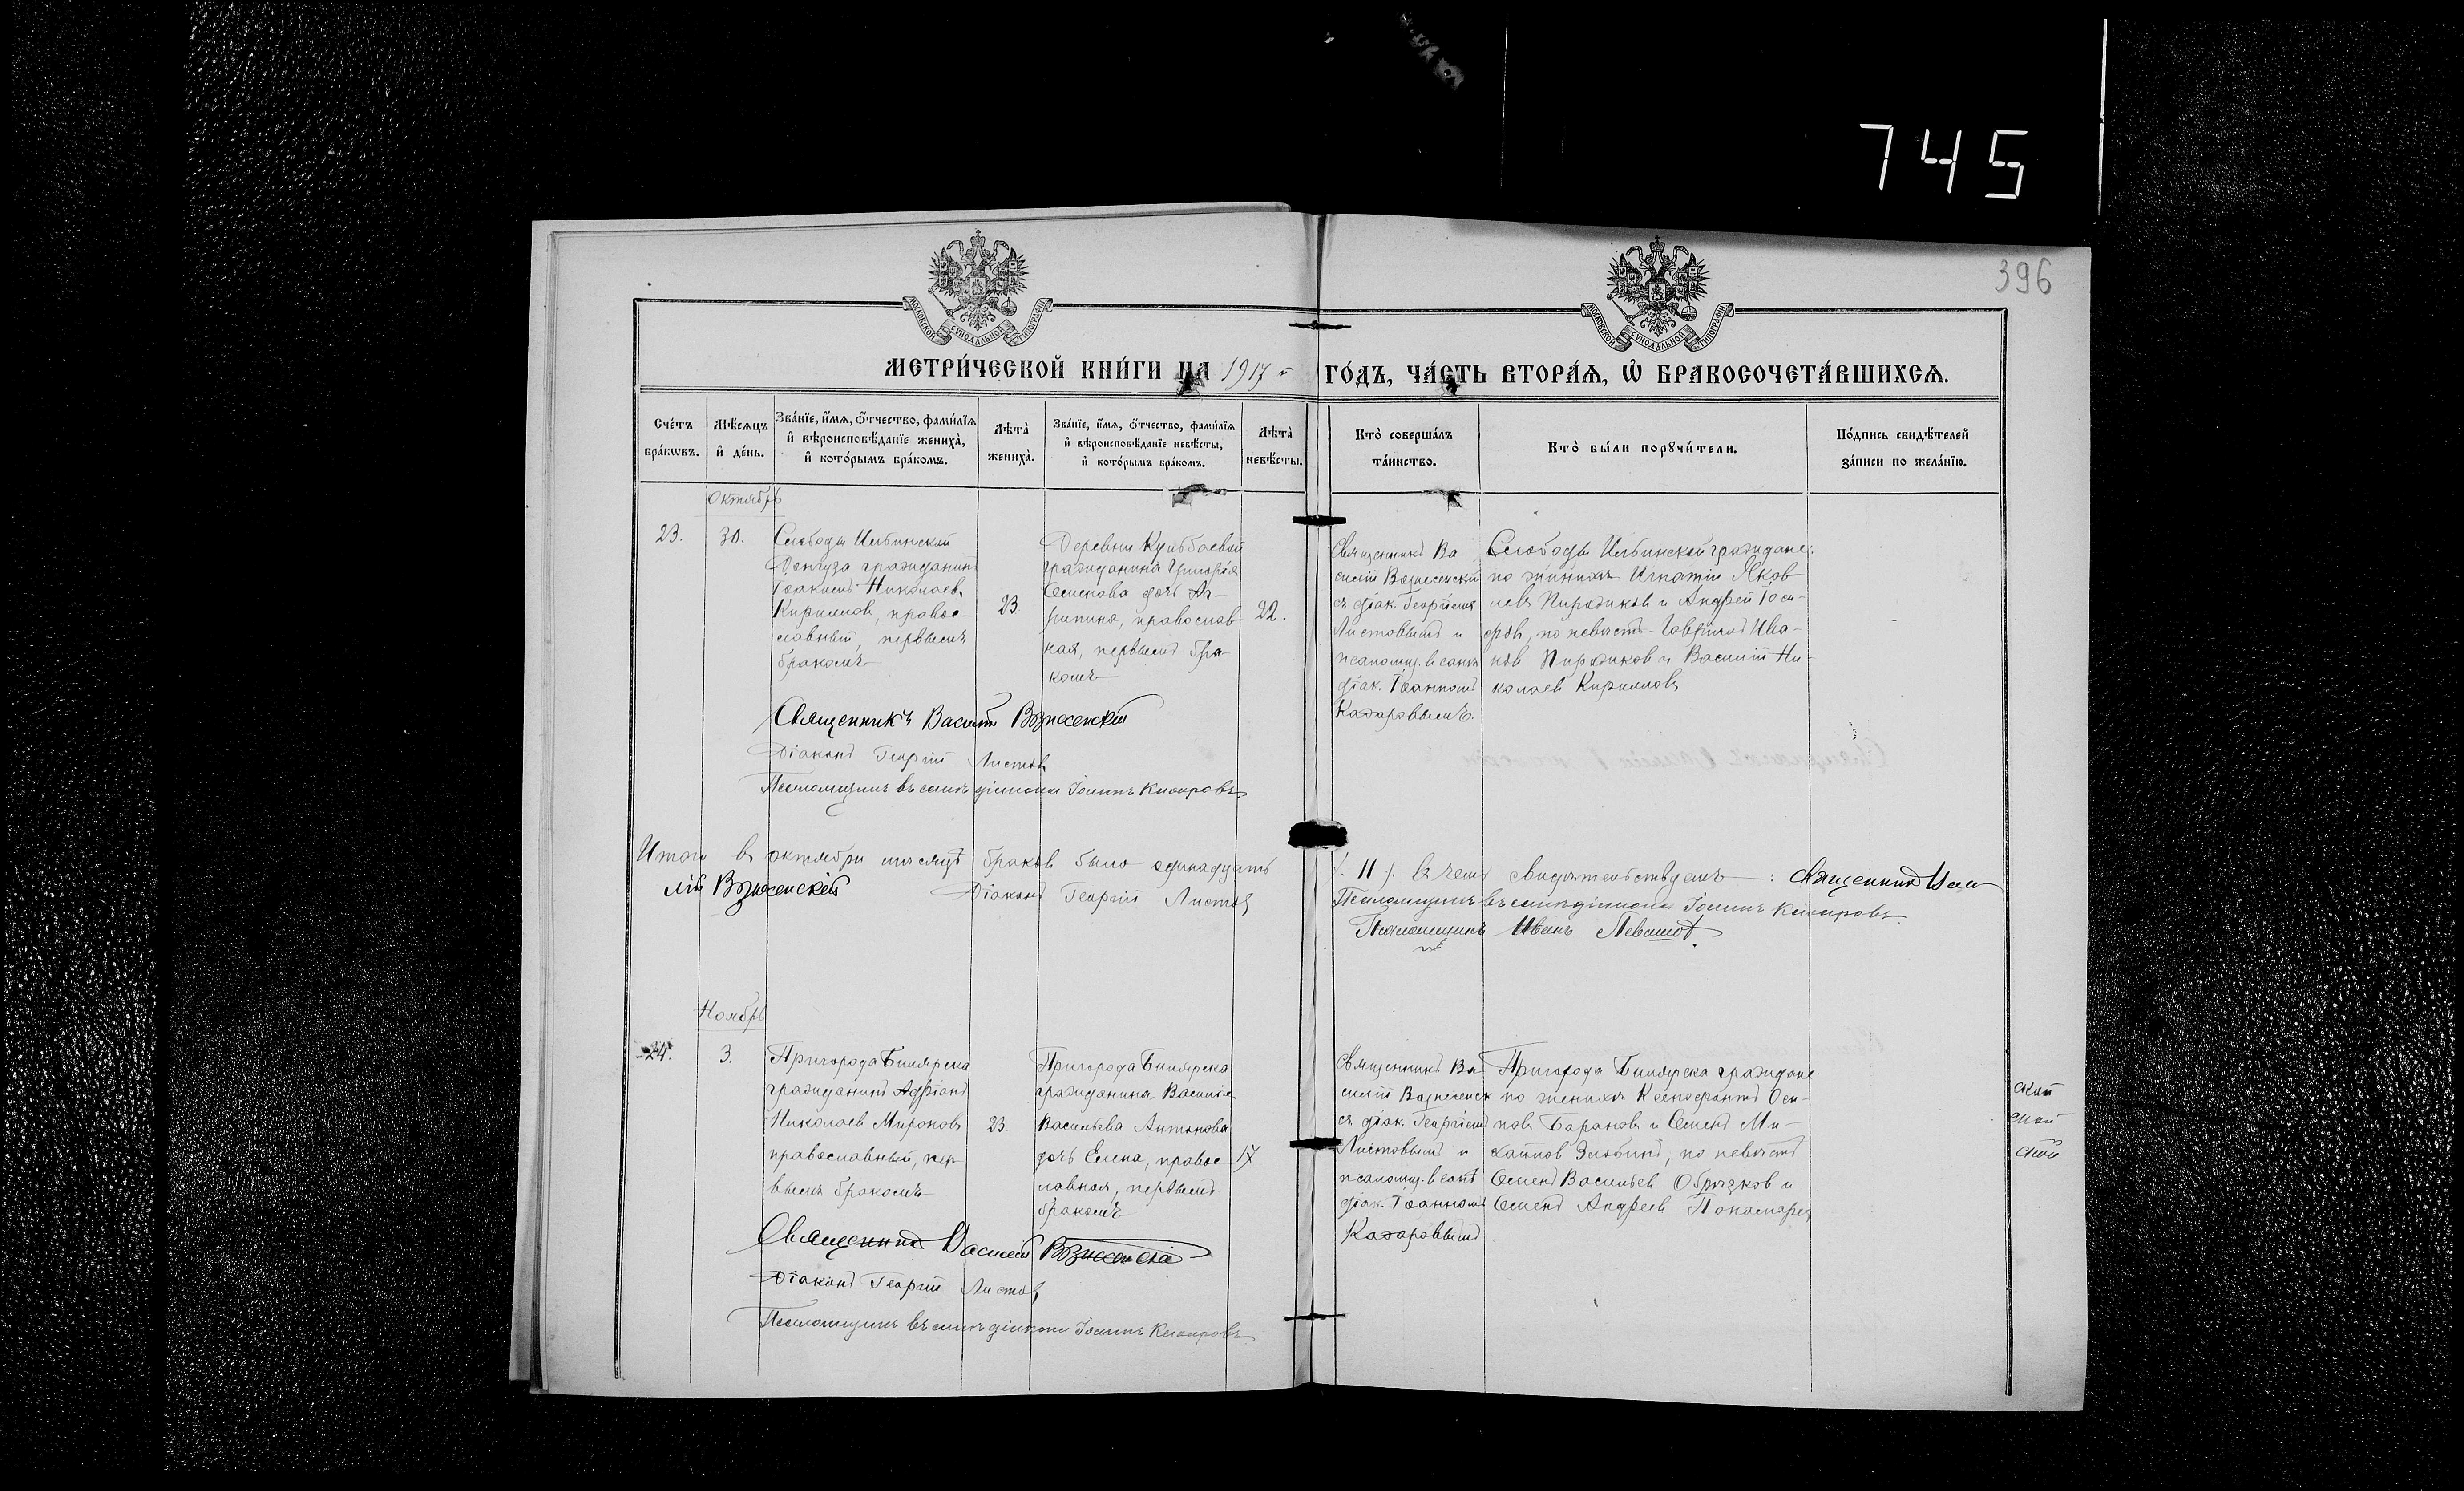 745
396
МОСКОВСКОЙ СУНОДАЛЬНОЙ ТИПОГРАФІИ
МОСКОВСКОЙ СУНОДАЛЬНОЙ ТИПОГРАФІИ
МЕТРИ́ЧЕСКОЙ КНИ́ГИ НА 1917 г
ГО́ДЪ, ЧА́СТЬ ВТОРА́Я, Ѡ҆ БРАКОСОЧЕТА́ВШИХСЯ.
Сче́тъ бра́кѡвъ.
Мѣ́сяцъ и҆ де́нь.
Зва́нїе, и҆́мя, ѻ҆́тчество, фами́лїя и҆ вѣроисповѣ́данїе жениха̀, и҆ кото́рымъ бра́комъ.
Лѣта̀ жениха̀.
Зва́нїе, и҆́мя, ѻ҆́тчество, фами́лїя и҆ вѣроисповѣ́данїе невѣ́сты, и҆ кото́рымъ бра́комъ.
Лѣта̀ невѣ́сты.
Кто̀ соверша́лъ та́инство.
Кто̀ бы́ли порꙋчи́тели.
По́дпись свидѣ́телей за́писи по жела́нїю.
Октябрь
23.
30.
Слободы
гражданинъ
Іоакимъ Николаевъ
Кирилловъ, правос-
лавный, первымъ
бракомъ
23
Деревни
гражданина Григорія
Семенова дочь Аг-
рипина, православ
ная, первымъ бра-
комъ
22.
Священникъ Ва
силій Вознесенскій
съ діак. Георгіемъ
Листовымъ и
псаломщ. въ санѣ
діак. Іоанномъ
Слободы граждане:
по женихѣ Игнатій Яков
левъ и Андрей Іоси-
фовъ, по невѣстѣ Гавріилъ Ива-
новъ и Василій Ни-
колаевъ Кирилловъ
Священникъ Василій Вознесенскій
Діаконъ Георгій Листовъ
Псаломщикъ въ санѣ діакона Іоаннъ
Итого въ октябрѣ мѣсяцѣ браковъ было одинадцать
/ 11 /. въ чемъ свидѣтельствуемъ: Священникъ Васи
лій Вознесенскій Діаконъ Георгій Листовъ
Псаломщикъ въ санѣ діакона Іоаннъ
Псаломщикъ Иванъ Левашовъ
Ноябрь
24.
3.
Пригорода Билярска
гражданинъ Адріанъ
Николаевъ Мироновъ
православный, пер
вымъ бракомъ
23.
Пригорода Билярска
гражданина Василія
Васильева Антонова
дочь Елена, правос
лавная, первымъ
бракомъ
17
Священникъ Ва
силій Вознесенск
съ діак. Георгіемъ
Листовымъ и
псаломщ. въ санѣ
діак. Іоанномъ
Пригорода Билярска граждане:
по женихѣ Ксенофонтъ Оси-
повъ Барановъ и Семенъ Ми-
хайловъ Злобинъ, по невѣстѣ
Семенъ Васильевъ Обрѣзковъ и
Семенъ Андреевъ Пономаревъ
Священникъ Василій Вознесенскій
Діаконъ Георгій Листовъ
Псаломщикъ въ санѣ діакона Іоаннъ